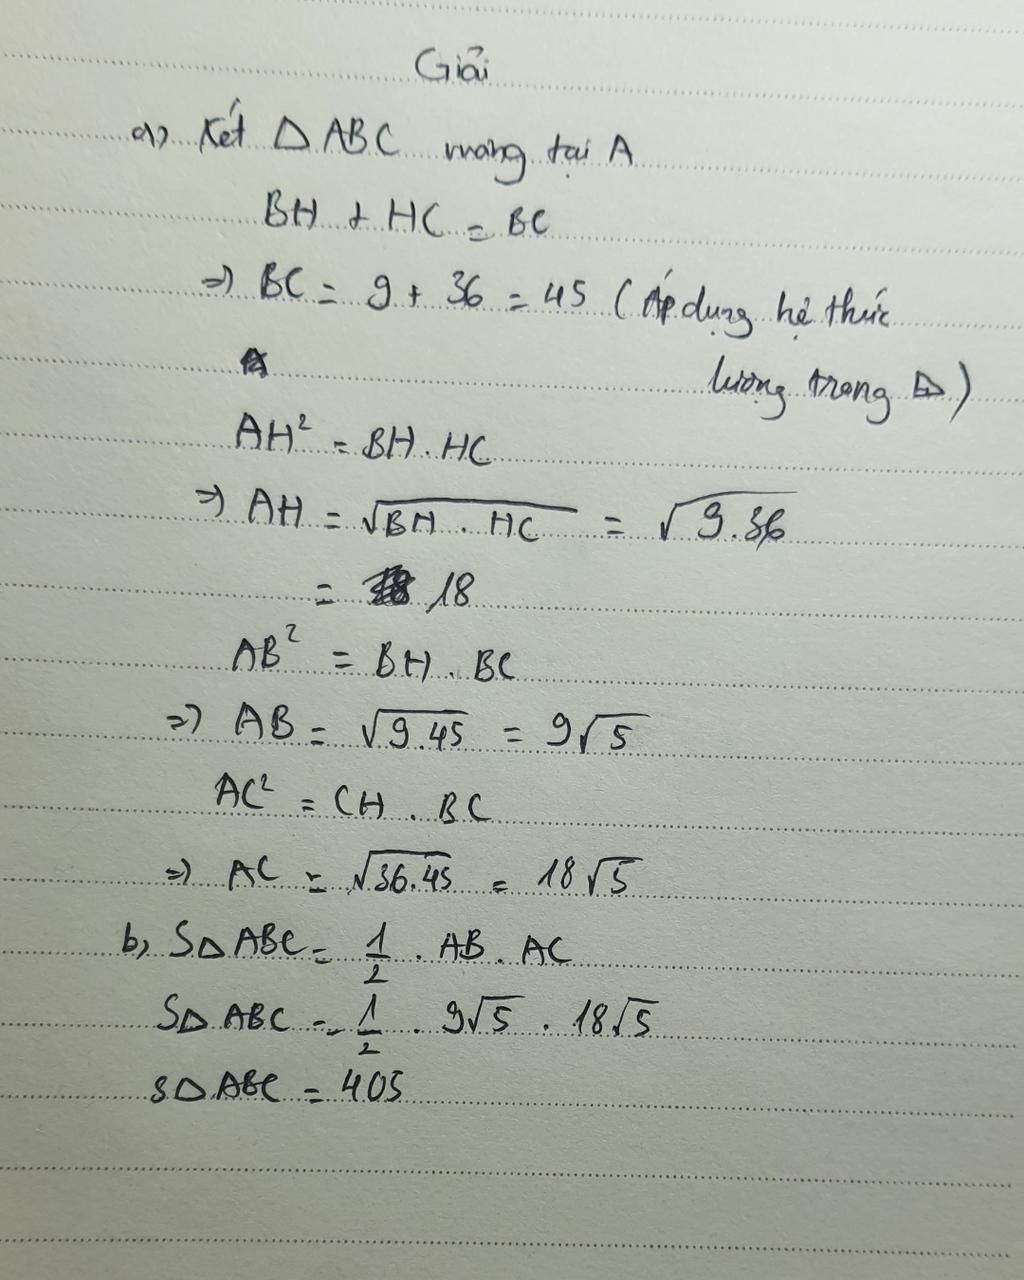 Giải
a) Xét △ ABC vuông tại A
BH + HC = BC
=> BC = 9 + 36 = 45 (Áp dụng hệ thức
lượng trong △)
AH² = BH . HC
=> AH = √BH . HC = √9.36
= 18
AB² = BH . BC
=> AB = √9.45 = 9√5
AC² = CH . BC
=> AC = √36.45 = 18√5
b, S△ ABC = 1/2 . AB . AC
S△ ABC = 1/2 . 9√5 . 18√5
S△ ABC = 405